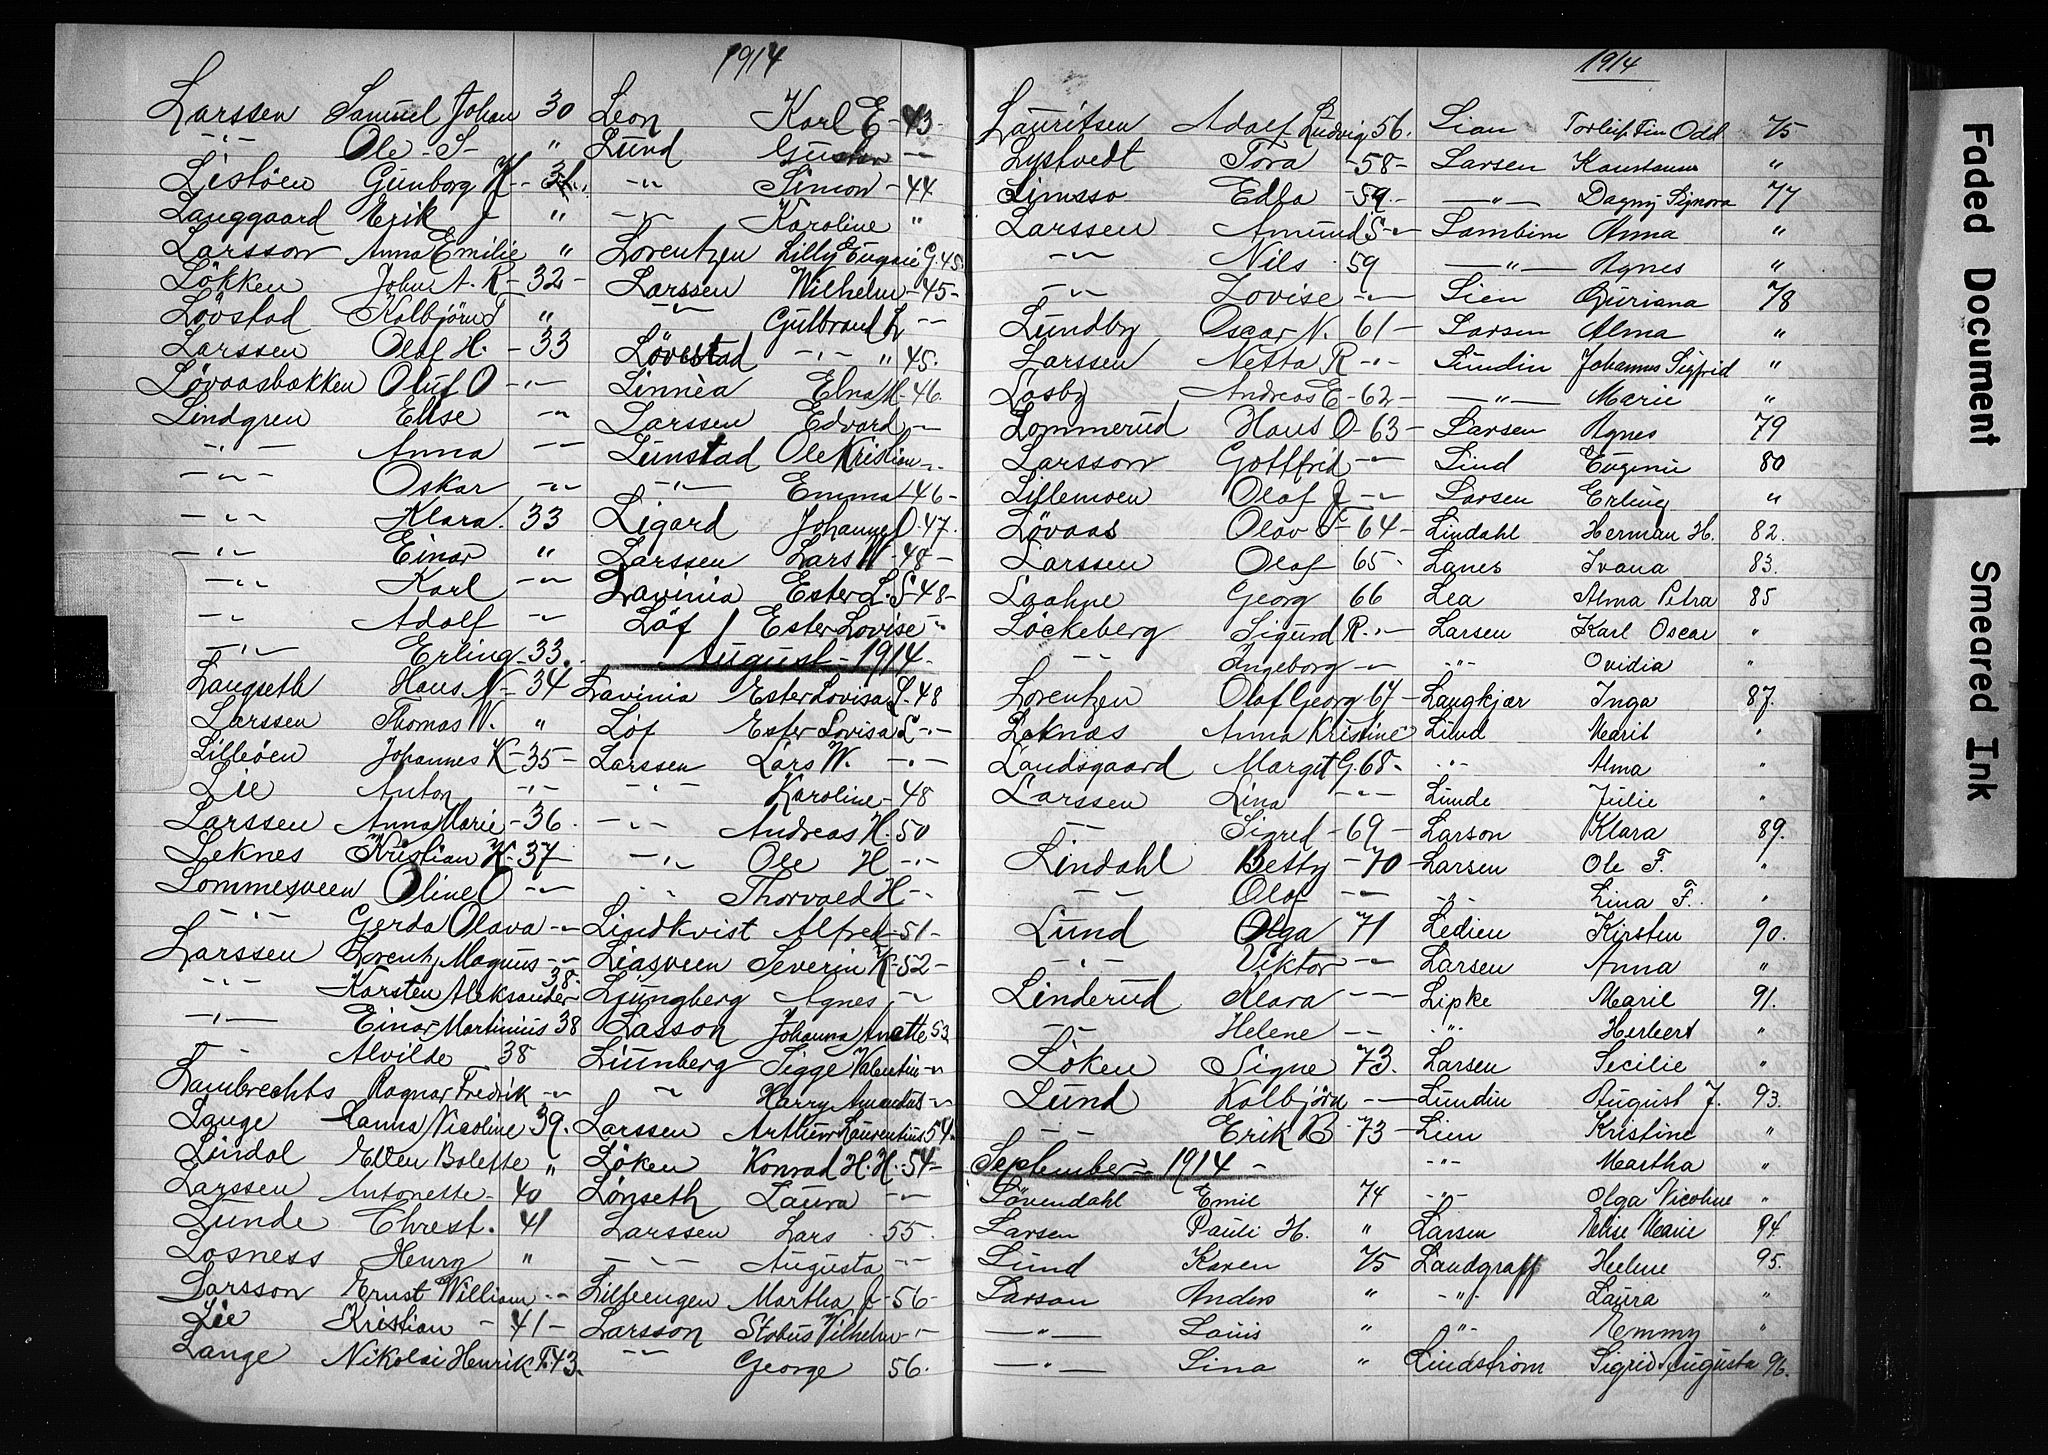 1914
Larssen Samuel Johan 30
-"- Ole S- "
Listöen Gunborg K- 31.
Langgaard Erik J "
Larsson Anna Emilie "
Lökken John A. R- 32-
Lövstad Kolbjörn F "
Larssen Olaf H. - 33
Lövaasbakken Oluf O -"-
Lindgren Elise -"-
-"- Anna -"-
-"- Oskar -"-
-"- Klara. 33
-"- Einar "
-"- Karl -"-
-"- Adolf -"-
-"- Erling 33.
Langseth Hans N- 34
Larssen Thomas W. "
Lilleöen Johannes K- 35-
Lie Anton -"-
Larssen Anna Marie - 36
Leknes Kristian K- 37-
Lommesveen Oline O -"-
-"- Gerda Olava -"-
Larssen Lorentz Magnus -"-
-"- Karsten Aleksander 38.
-"- Einar Martinius 38
-"- Alvilde 38
Lambrechts Ragnar Fredrik -"-
Lange Hanna Nicoline 39.
Lindal Ellen Bolette "
Larssen Antonette- 40
Lunde Chrest. 41
Losness Henry "
Larsson Ernst William -"-
Lie Kristian - 41-
Lange Nikolai Henrik T. 43.
Leon Karl E- 43-
Lund Gustav -"-
-"- Simon - 44
-"- Karoline "
Lorentzen Lilly Eugenie G. 45.
Larssen Wilhelm - 45-
-"- Gulbrand L -"-
Lövestad -"- " 45.
Linnèa Elna M. 46.
Larssen Edvard -"-
Lunstad Ole Kristian -"-
-"- Emma 46-
Ligard Johannes O. 47.
Larssen Lars W - 48-
Lavinia Ester L. S 48-
Löf Ester Lovise -"-
August - 1914.
Lavinia Ester Lovisa L. 48
Löf Ester Lovisa L -"-
Larssen Lars W. -"-
-"- Karoline - 48
-"- Andreas H. 50
-"- Ole H -"-
-"- Thorvald H -"-
Lindkvist Alfred - 51-
Liasveen Severin K- 52-
Ljungberg Agnes -"-
Lasson Johanna Anette 53
Liunberg Sigge Valentin -"-
-"- Harry Amandus -"-
Larssen Arthur Laurentius 54.
Löken Konrad H. H. 54-
Lönseth Laura -"-
Larssen Lars 55.
-"- Augusta -"-
Lillengen Martha J- 56-
Larsson Stobus Vilhelm -"-
-"- George 56.
1914
Lauritsen Adolf Ludvig 56.
Lystvedt Tora - 58-
Limsso Edla - 59.-
Larssen Amund S -"-
-"- Nils 59
-"- Lovise -"-
Lundby Oscar N. 61-
Larssen Netta R -"-
Losby Andreas E- 62-
Lommerud Hans O- 63-
Larsson Gottfrid -"-
Lillemoen Olaf J -"-
Lövaas Olav F 64-
Larssen Olaf 65-
Laahne Georg 66
Löckeberg Sigurd R. -"-
-"- Ingeborg -"-
Lorentzen Olaf Georg 67-
Leknæs Anna Kristine
Landsgaard Margit G. 68-
Larssen Lina -"-
-"- Sigred - 69-
Lindahl Betty - 70-
-"- Olaf -"-
Lund Olga 71
-"- Viktor -"-
Linderud Klara -"-
-"- Helene -"-
Löken Signe 73.
Lund Kolbjörn -"-
-"- Erik B - 73-
September - 1914 -
Lövendahl Emil 74
Larsen Pauli H. "
Lund Karen 75
Larson Anders "
-"- Louis "
-"- Lina "
Lian Torleif Fin Odd 75
Larsen Konstanse "
-"- Dagny Signora 77
Lambine Anna "
-"- Agnes "
Lien Guriana 78
Larsen Alma "
Lundin Johannes Sigfrid "
-"- Marie "
Larsen Agnes 79
Lind Eugenie 80
Larsen Erling "
Lindahl Herman H. 82.
Lanes Ivana 83.
Lea Alma Petra 85
Larsen Karl Oscar "
-"- Ovidia "
Langkjær Inga 87.
Lund Marit "
-"- Alma "
Lunde Julie "
Larson Klara 89.
Larsen Ole F. "
-"- Lina F. "
Ledien Kirsten 90.
Larsen Anna "
Lipke Marie 91.
-"- Herbert "
Larsen Secilie "
Lundin August J. 93.
Lien Kristine "
-"- Martha "
-"- Olga Nicoline "
Larsen Elise Marie 94.
Landgraff Helene 95.
-"- Laura "
-"- Emmy "
Lindström Sigrid Augusta 96.
Faded Document
Smeared Ink